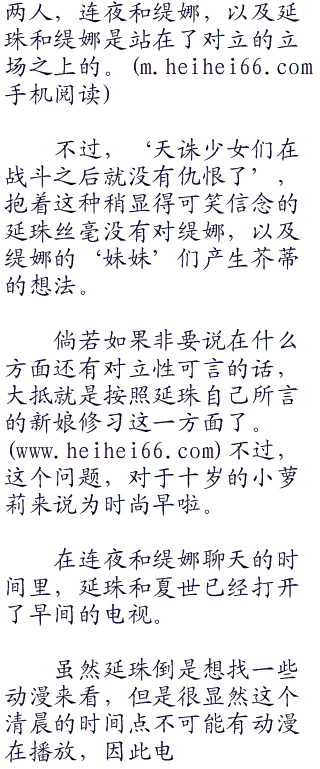 两人，连夜和缇娜，以及延
珠和缇娜是站在了对立的立
场之上的。(m.heihei66.com
手机阅读)
不过，‘天诛少女们在
战斗之后就没有仇恨了’，
抱着这种稍显得可笑信念的
延珠丝毫没有对缇娜，以及
缇娜的‘妹妹’们产生芥蒂
的想法。
倘若如果非要说在什么
方面还有对立性可言的话，
大抵就是按照延珠自己所言
的新娘修习这一方面了。
(www.heihei66.com)不过，
这个问题，对于十岁的小萝
莉来说为时尚早啦。
在连夜和缇娜聊天的时
间里，延珠和夏世已经打开
了早间的电视。
虽然延珠倒是想找一些
动漫来看，但是很显然这个
清晨的时间点不可能有动漫
在播放，因此电